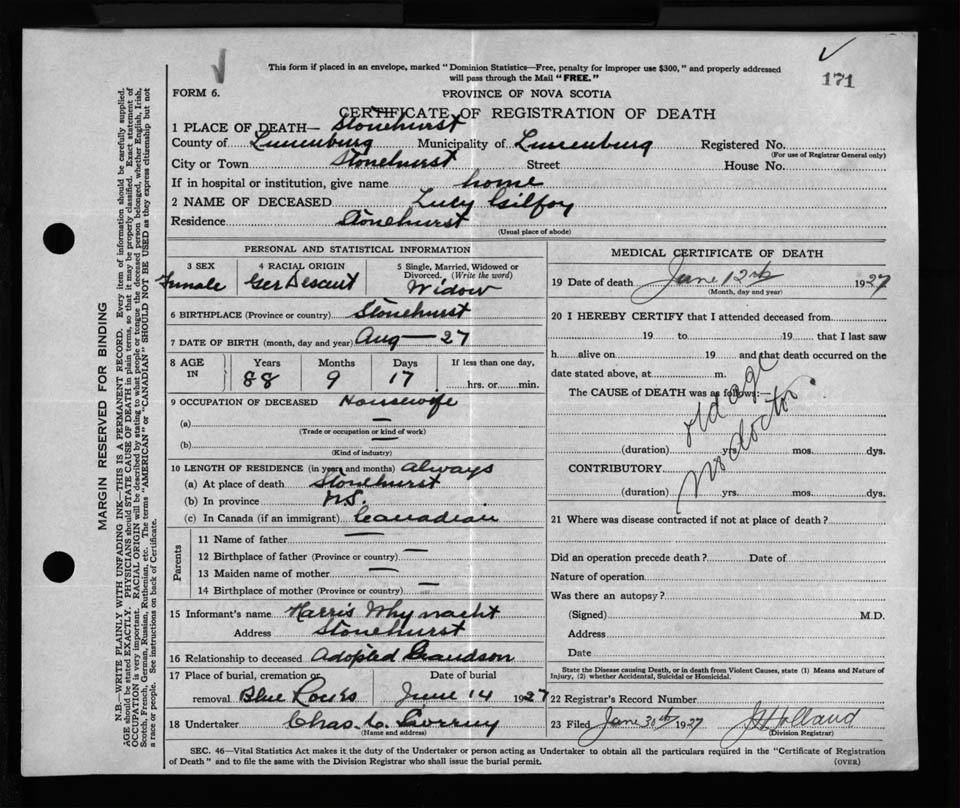 This form if placed in an envelope, marked "Dominion Statistics—Free, penalty for improper use $300," and properly addressed
will pass through the Mail "FREE."
171
FORM 6.
PROVINCE OF NOVA SCOTIA
CERTIFICATE OF REGISTRATION OF DEATH
1 PLACE OF DEATH— Stonehurst
County of Lunenburg Municipality of Lunenburg Registered No.
(For use of Registrar General only)
City or Town Stonehurst Street House No.
If in hospital or institution, give name home
2 NAME OF DECEASED Lucy Gilfoy
Residence Stonehurst
(Usual place of abode)
PERSONAL AND STATISTICAL INFORMATION
3 SEX 4 RACIAL ORIGIN 5 Single, Married, Widowed or
Divorced. (Write the word)
Female Ger Descent Widow
6 BIRTHPLACE (Province or country) Stonehurst
7 DATE OF BIRTH (month, day and year) Aug — 27
8 AGE IN Years Months Days If less than one day,
88 9 17 hrs. or min.
9 OCCUPATION OF DECEASED Housewife
(a) —
(Trade or occupation or kind of work)
(b) —
(Kind of industry)
10 LENGTH OF RESIDENCE (in years and months) always
(a) At place of death Stonehurst
(b) In province N.S.
(c) In Canada (if an immigrant) Canadian
Parents
11 Name of father —
12 Birthplace of father (Province or country) —
13 Maiden name of mother —
14 Birthplace of mother (Province or country) —
15 Informant's name Harris Whynacht
Address Stonehurst
16 Relationship to deceased Adopted Grandson
17 Place of burial, cremation or Date of burial
removal Blue Rocks June 14 1927
18 Undertaker Chas.
(Name and address)
MEDICAL CERTIFICATE OF DEATH
19 Date of death June 12th 1927
(Month, day and year)
20 I HEREBY CERTIFY that I attended deceased from
19 to 19 that I last saw
h alive on 19 and that death occurred on the
date stated above, at m.
The CAUSE of DEATH was as follows:—
old age
no doctor
(duration) yrs. mos. dys.
CONTRIBUTORY
(duration) yrs. mos. dys.
21 Where was disease contracted if not at place of death?
Did an operation precede death? Date of
Nature of operation
Was there an autopsy?
(Signed) M.D.
Address
Date
State the Disease causing Death, or in death from Violent Causes, state (1) Means and Nature of
Injury, (2) whether Accidental, Suicidal or Homicidal.
22 Registrar's Record Number
23 Filed June 30th 1927 Holland
(Division Registrar)
SEC. 46—Vital Statistics Act makes it the duty of the Undertaker or person acting as Undertaker to obtain all the particulars required in the "Certificate of Registration
of Death" and to file the same with the Division Registrar who shall issue the burial permit.
(OVER)
MARGIN RESERVED FOR BINDING
N.B.—WRITE PLAINLY WITH UNFADING INK—THIS IS A PERMANENT RECORD. Every item of information should be carefully supplied.
AGE should be stated EXACTLY. PHYSICIANS should STATE CAUSE OF DEATH in plain terms, so that it may be properly classified. Exact statement of
OCCUPATION is very important. RACIAL ORIGIN will be described by stating to what people or tongue the deceased person belonged, whether English, Irish,
Scotch, French, German, Russian, Ruthenian, etc. The terms "AMERICAN" or "CANADIAN" SHOULD NOT BE USED as they express citizenship but not
a race or people. See instructions on back of Certificate.